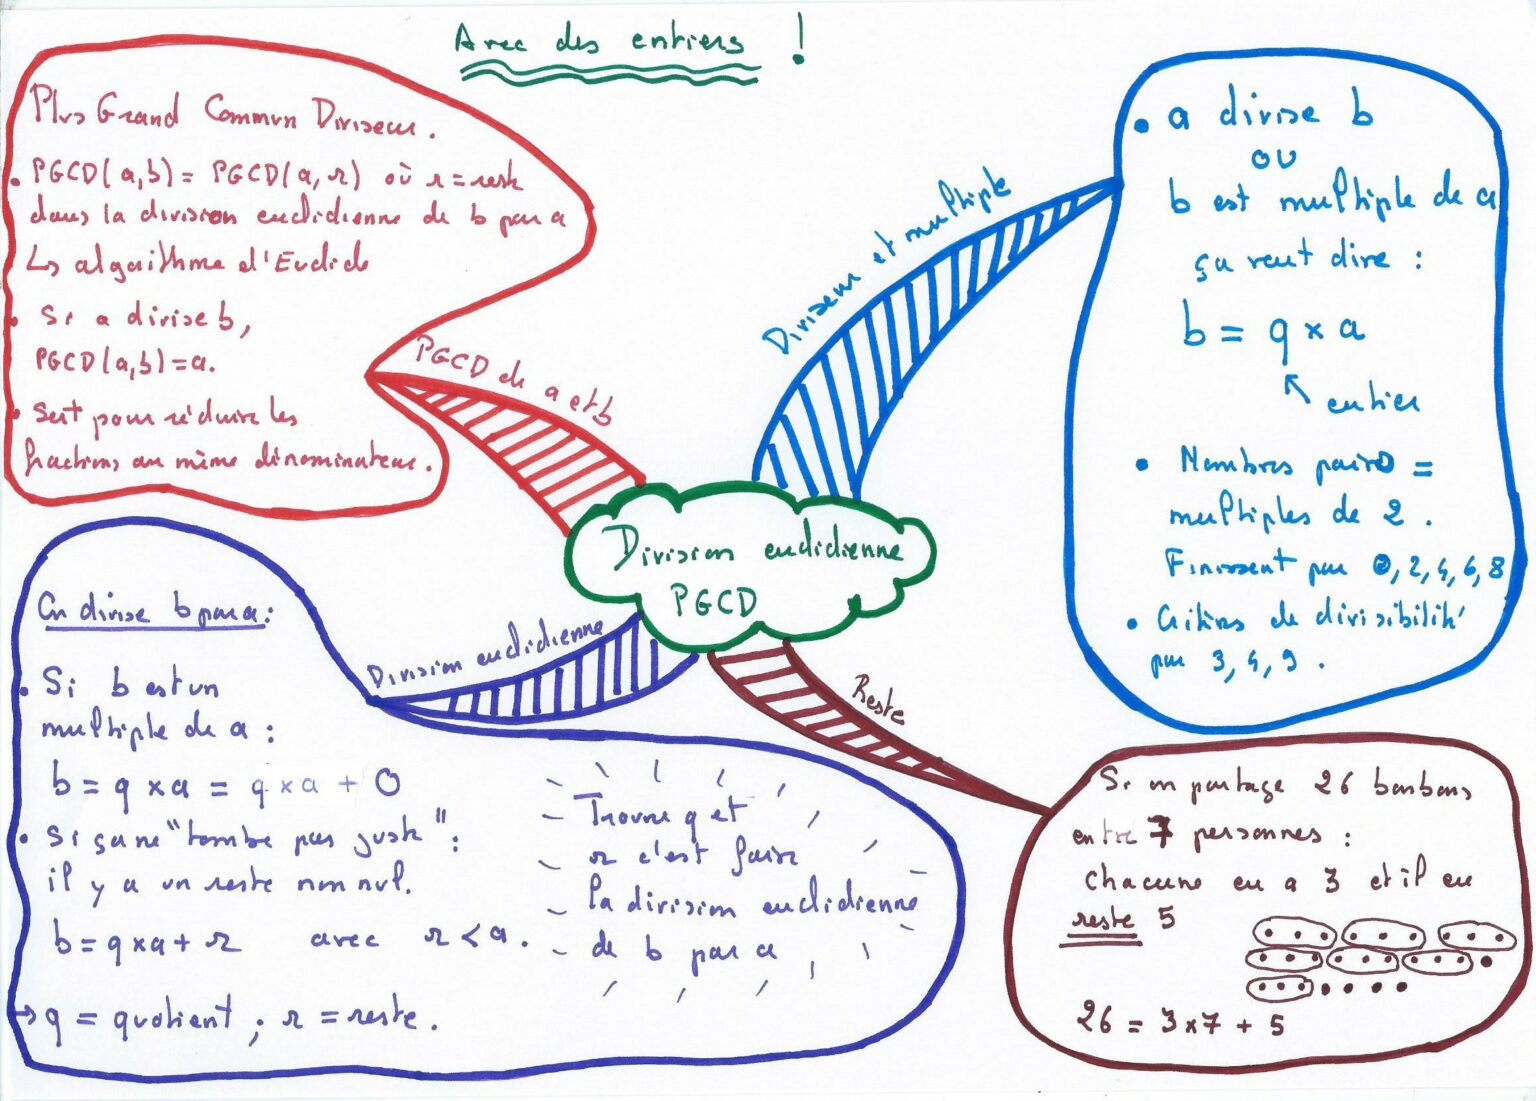 Avec des entiers !
Plus Grand Commun Diviseur.
• PGCD(a,b) = PGCD(a,r) où r = reste
dans la division euclidienne de b par a
↳ algorithme d'Euclide
• Si a divise b,
PGCD(a,b) = a.
• Sert pour réduire les
fractions au même dénominateur.
PGCD de a et b
Diviseur et multiple
• a divise b
ou
b est multiple de a
ça veut dire :
b = q × a
↖ entier
• Nombres pairs =
multiples de 2.
Finissent par 0, 2, 4, 6, 8
• Critères de divisibilité
par 3, 4, 9.
Division euclidienne
PGCD
Division euclidienne
On divise b par a :
• Si b est un
multiple de a :
b = q × a = q × a + 0
• Si ça ne "tombe pas juste" :
il y a un reste non nul.
b = q × a + r avec r < a.
→ q = quotient ; r = reste.
Trouver q et
r c'est faire
la division euclidienne
de b par a
Reste
Si on partage 26 bonbons
entre 7 personnes :
chacune en a 3 et il en
reste 5
26 = 3 × 7 + 5